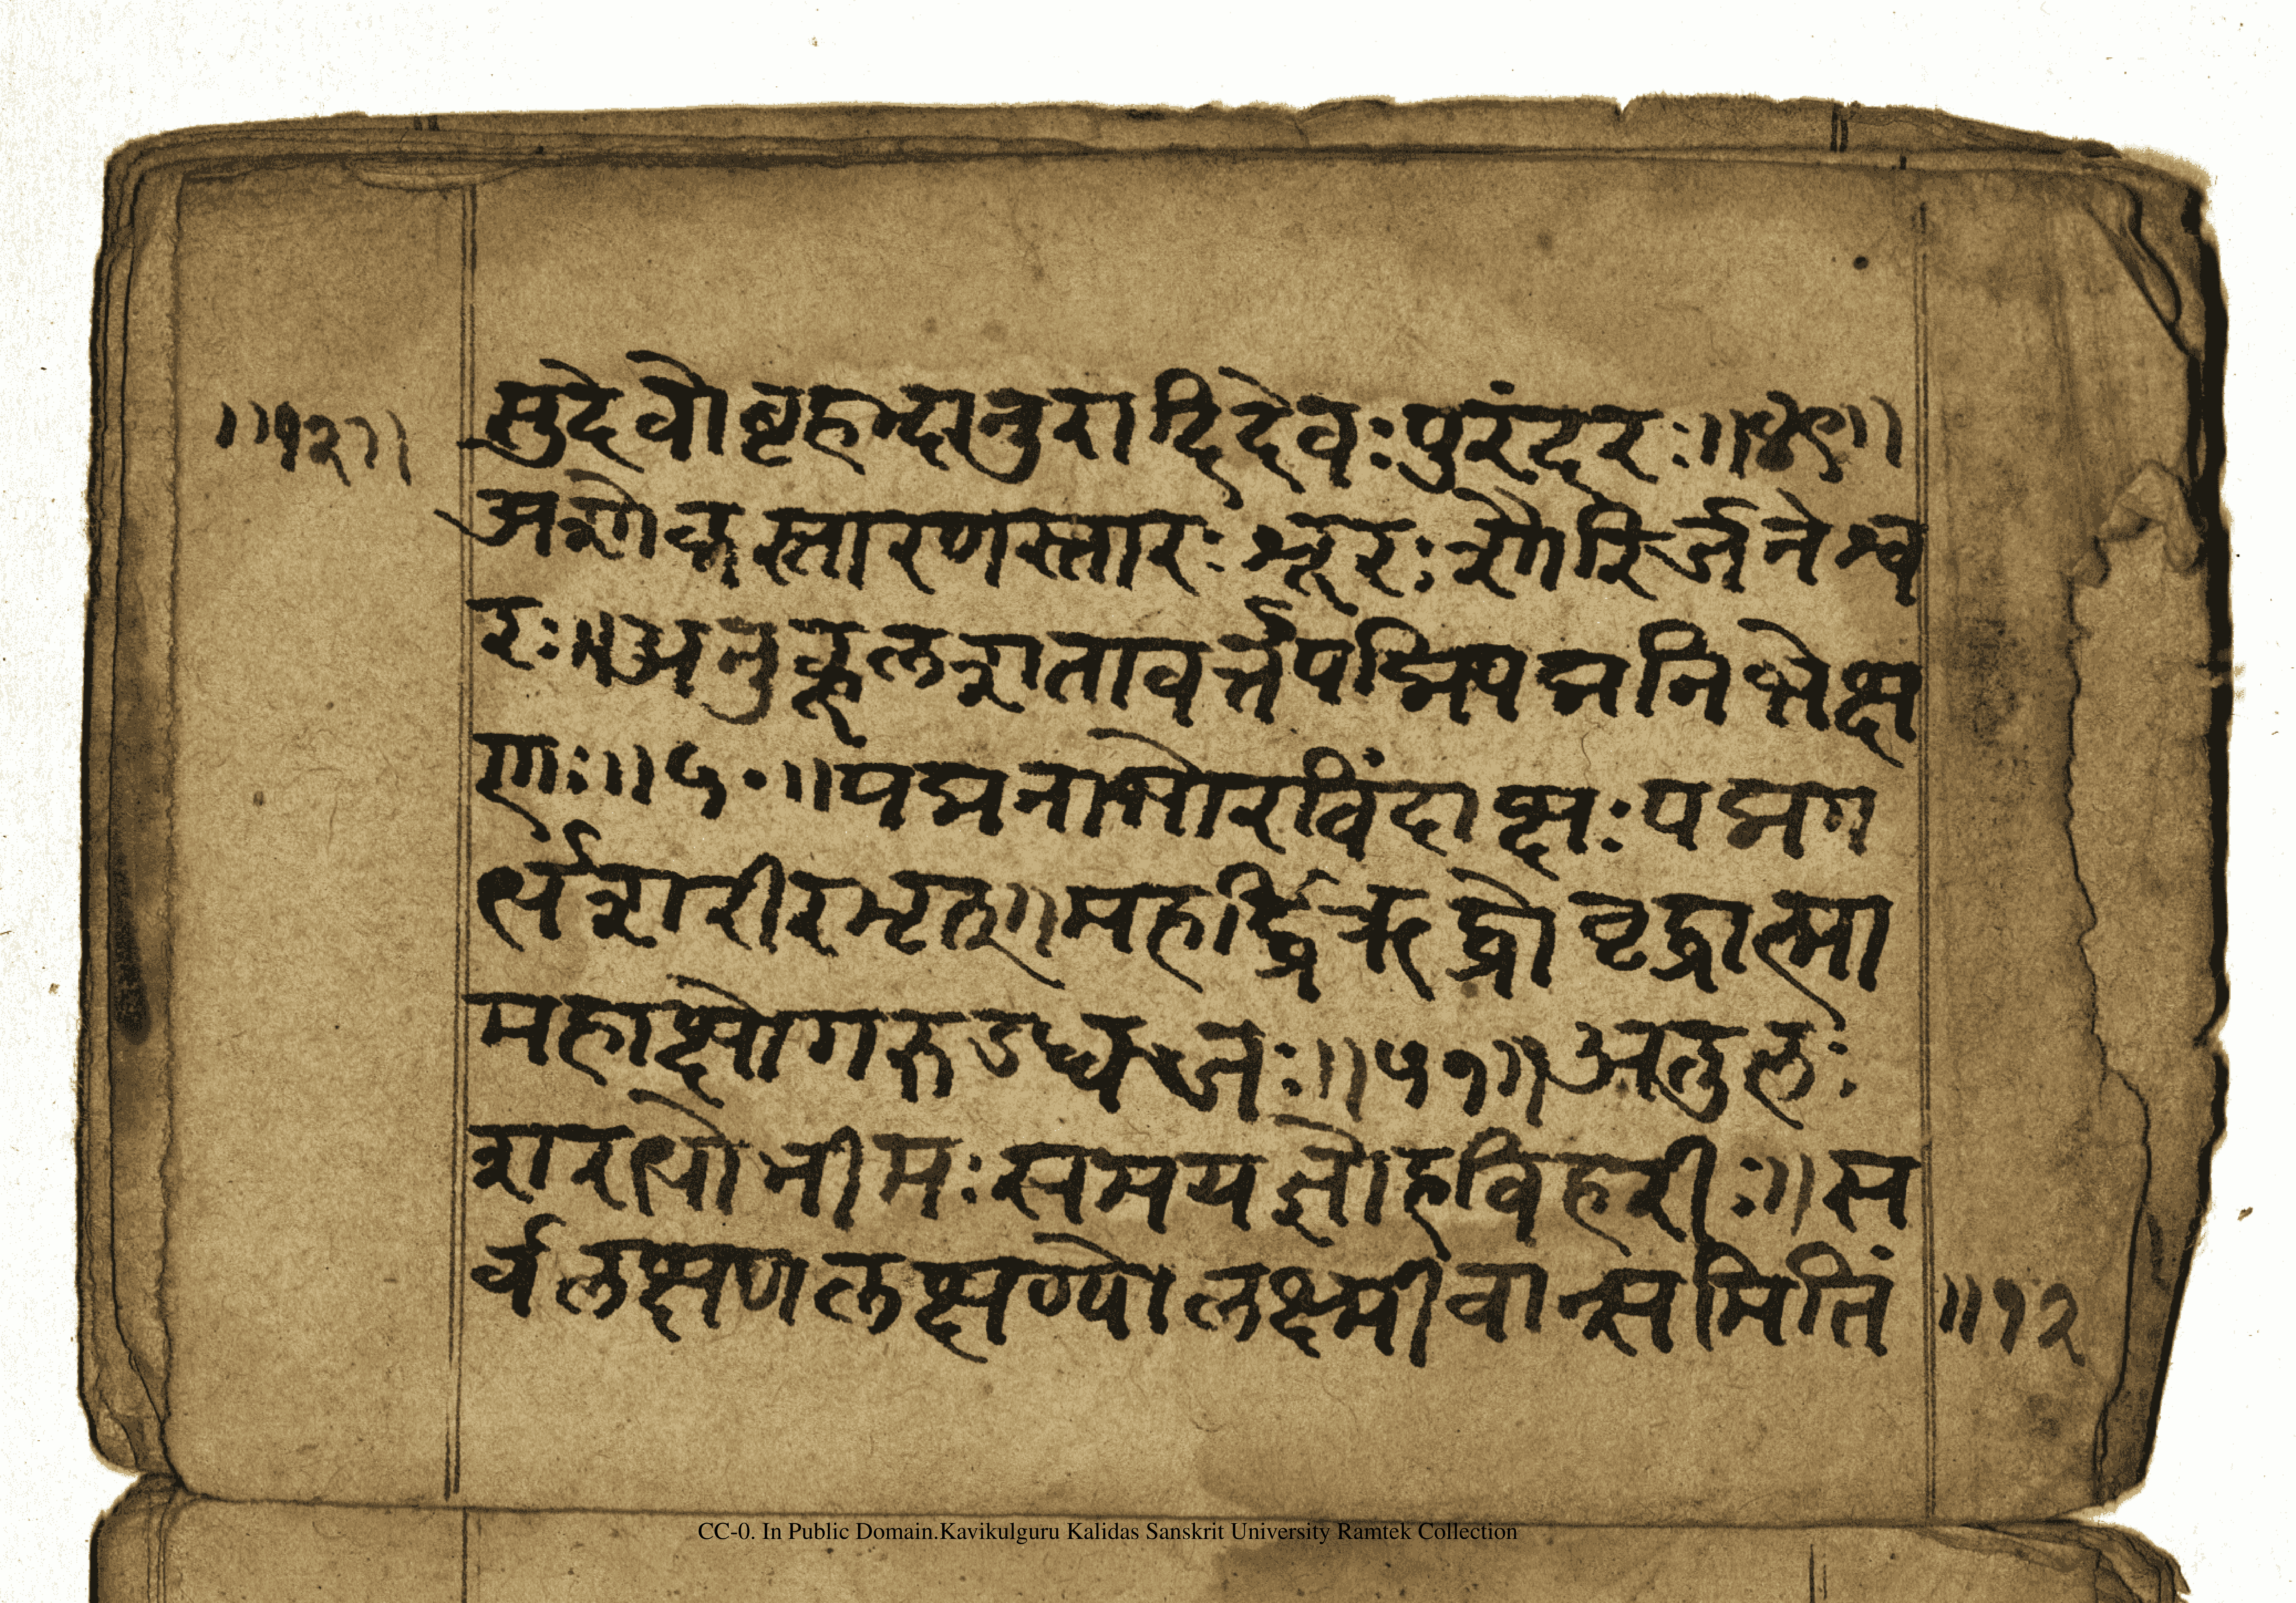 ॥१२॥
सुदेवो बृहद्भानुरादिदेवः पुरंदरः ॥४९॥
अशोकस्तारणस्तारः शूरः शौरिर्जनेश्व
रः ॥ अनुकूलशतावर्त्तपद्मिपद्मनिभेक्ष
णः ॥५०॥ पद्मनाभोरविंदाक्षः पद्मग
र्भर्शरीरभृत् ॥ महर्द्धिर्ऋद्धो वृद्धात्मा
महाक्षो गरुडध्वजः ॥५१॥ अतुलः
शरभो भीमः समयज्ञो हविर्हरीः ॥ स
र्वलक्षणलक्षण्यो लक्ष्मीवान्समितिं
॥१२
CC-0. In Public Domain.Kavikulguru Kalidas Sanskrit University Ramtek Collection